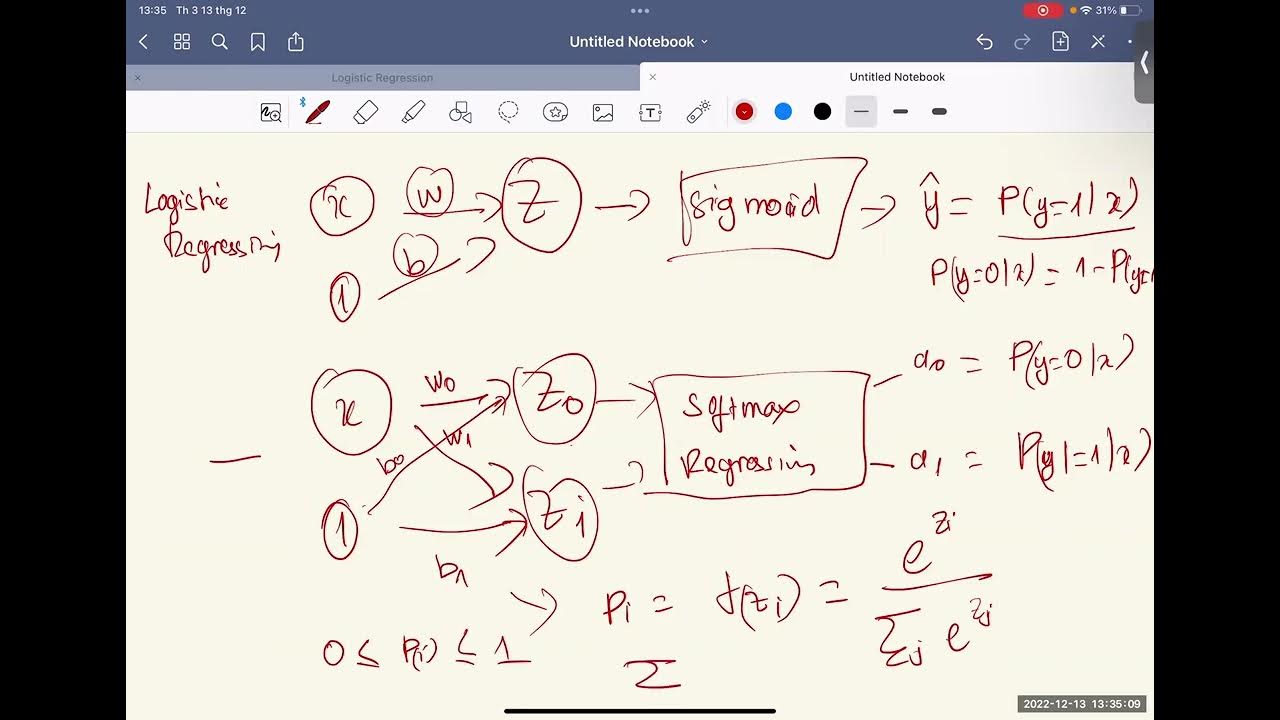 13:35 Th 3 13 thg 12
31%
Untitled Notebook
Logistic Regression
Untitled Notebook
Logistic
Regression
x
w
z
sigmoid
ŷ = P(y=1|x)
b
1
P(y=0|x) = 1-P(y=1
x
w0
z0
Softmax
Regression
a0 = P(y=0|x)
w1
b0
a1 = P(y|=1|x)
1
zi
b1
Pi = f(zi) = e^zi / Σj e^zj
0 ≤ P(i) ≤ 1
Σ
2022-12-13 13:35:09